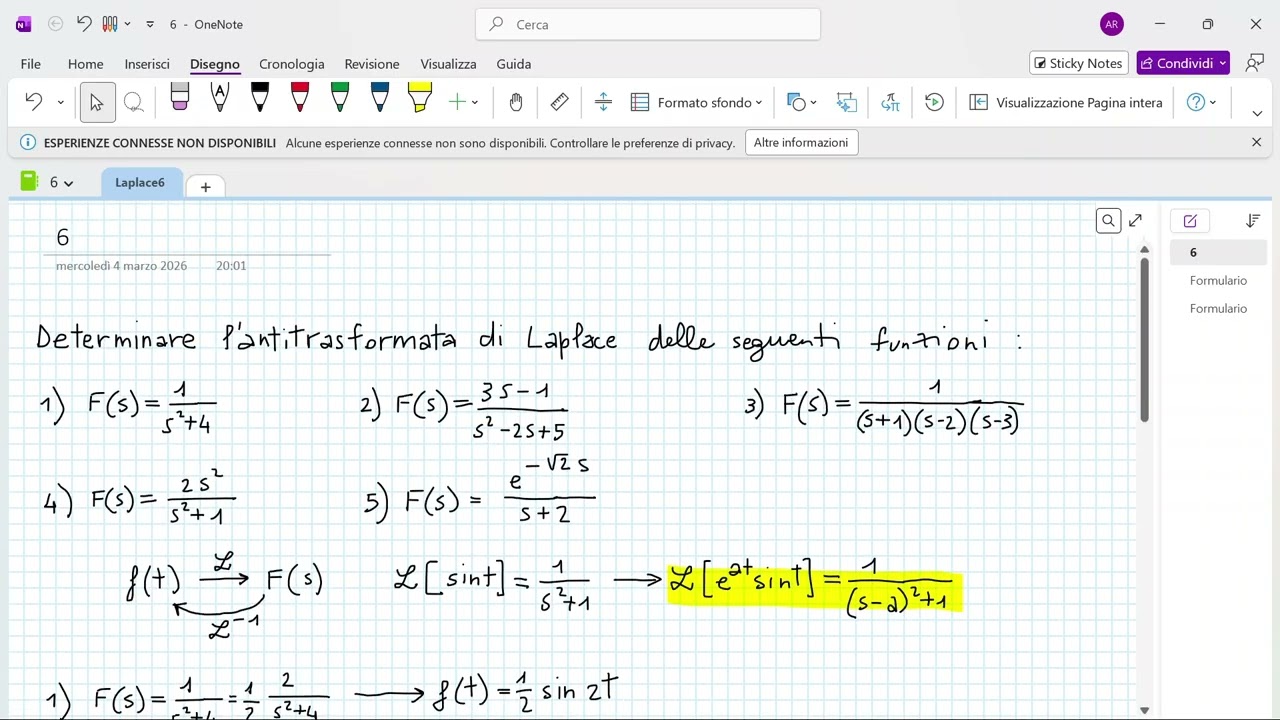 6 - OneNote
Cerca
AR
File Home Inserisci Disegno Cronologia Revisione Visualizza Guida
Sticky Notes Condividi
Formato sfondo Visualizzazione Pagina intera
ESPERIENZE CONNESSE NON DISPONIBILI Alcune esperienze connesse non sono disponibili. Controllare le preferenze di privacy. Altre informazioni
6 Laplace6 +
6
mercoledì 4 marzo 2026 20:01
6
Formulario
Formulario
Determinare l'antitrasformata di Laplace delle seguenti funzioni :
1) F(s) = 1/(s²+4) 2) F(s) = (3s-1)/(s²-2s+5) 3) F(s) = 1/((s+1)(s-2)(s-3))
4) F(s) = 2s²/(s²+1) 5) F(s) = e^(-√2 s)/(s+2)
f(t) →ℒ F(s) ℒ⁻¹ ℒ[sint] = 1/(s²+1) → ℒ[e^(2t) sint] = 1/((s-2)²+1)
1) F(s) = 1/(s²+4) = 1/2 2/(s²+4) → f(t) = 1/2 sin 2t